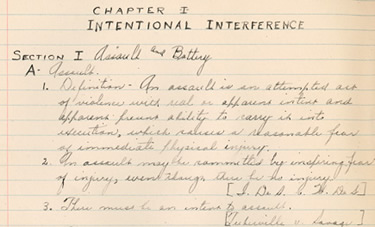 CHAPTER I
INTENTIONAL INTERFERENCE
SECTION I Assault and Battery
A. Assault.
1. Definition - An assault is an attempted act
of violence with real or apparent intent and
apparent present ability to carry it into
execution, which causes a reasonable fear
of immediate physical injury.
2. An assault may be committed by inspiring fear
of injury, even though there be no injury.
[I. De S. & W. De S.]
3. There must be an intent to assault.
[Tuberville v. Savage]